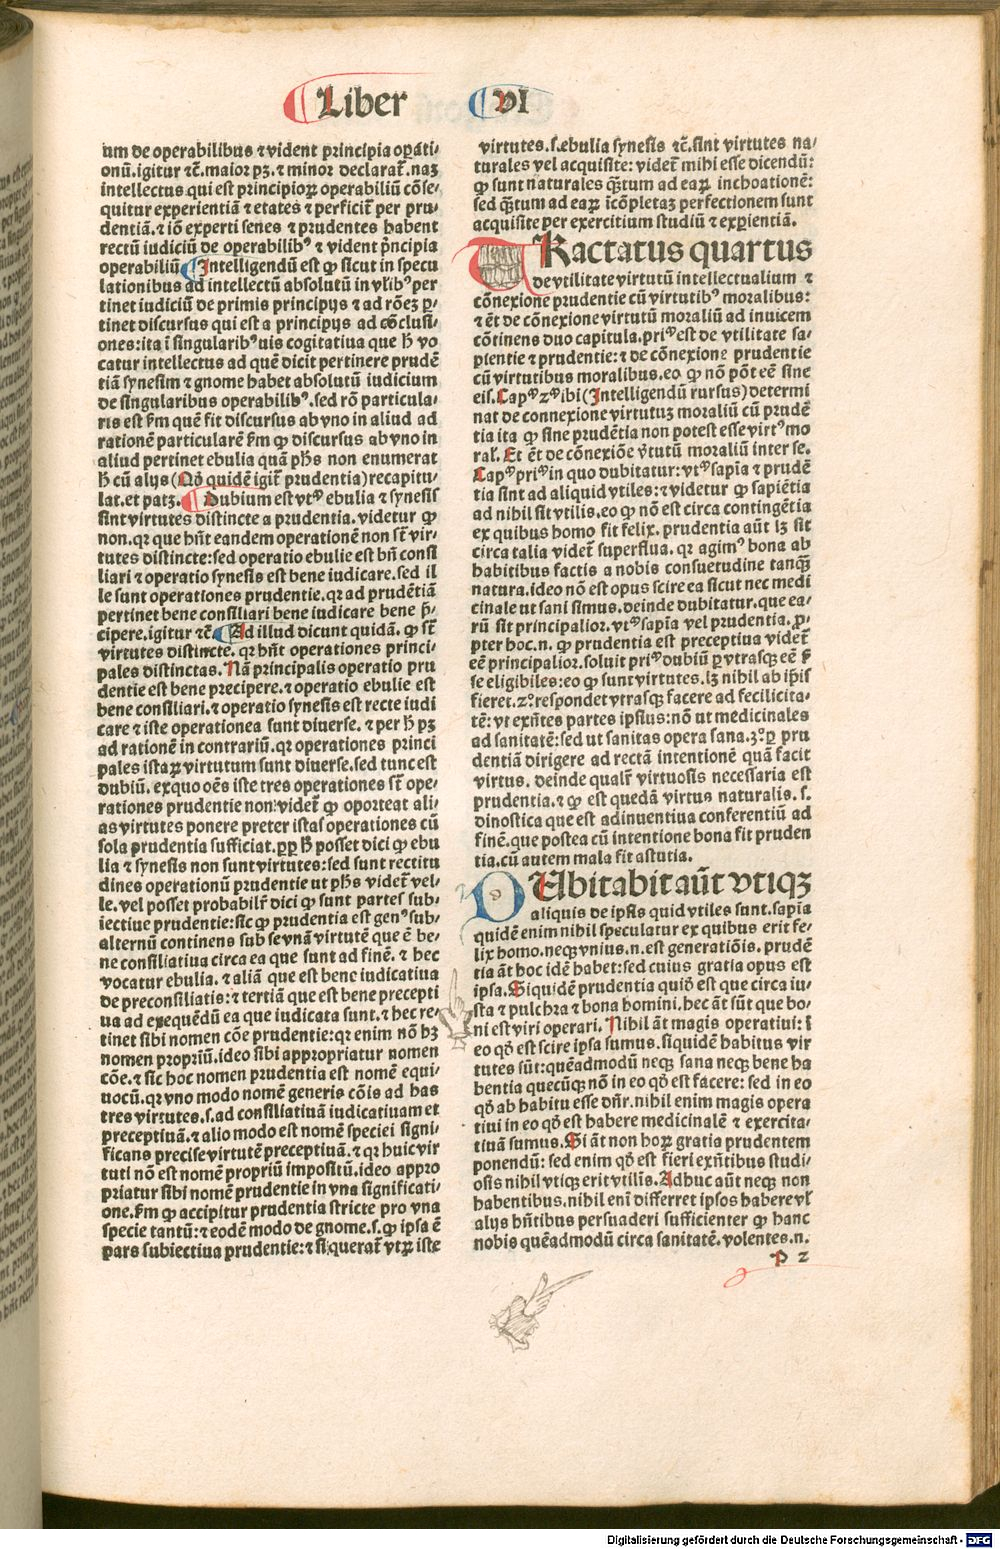 Liber VI
um de operabilibus ⁊ vident principia oꝑati-
onū.igitur ⁊c̄.maior pꝫ.⁊ minor declarat̄.naꝫ
intellectus qui est principioꝝ operabiliū cōse-
quitur experientiā ⁊ etates ⁊ perficit̄ per pru-
dentiā.⁊ iō experti senes ⁊ prudentes habent
rectū iudiciū de operabilibꝰ ⁊ vident p̄ncipia
operabiliū Intelligendū est ꝙ sicut in specu
lationibus ad intellectū absolutū in vl̄ibꝰ per
tinet iudiciū de primis principijs ⁊ ad rōeꝫ ꝑ-
tinet discursus qui est a principijs ad cōclusi-
ones:ita ī singularibꝰ uis cogitatiua que h̄ vo
catur intellectus ad quē dicit pertinere prudē
tiā synesim ⁊ gnome habet absolutū iudicium
de singularibus operabilibꝰ.sed rō particula-
ris est s̄m quē fit discursus ab vno in aliud ad
rationē particularē s̄m ꝙ discursus ab vno in
aliud pertinet ebulia quā ph̄s non enumerat
h̄ cū alijs (Nō quidē igit̄ prudentia) recapitu-
lat.et patꝫ. Dubium est vtꝝ ebulia ⁊ synesis
sint virtutes distincte a prudentia.videtur ꝙ
non.qꝛ que hn̄t eandem operationē non st̄ vir-
tutes distincte:sed operatio ebulie est bn̄ consi
liari ⁊ operatio synesis est bene iudicare.sed il
le sunt operationes prudentie.qꝛ ad prudētiā
pertinet bene consiliari bene iudicare bene p̄-
cipere.igitur ⁊c̄. Ad illud dicunt quidā.ꝙ st̄
virtutes distincte. qꝛ hn̄t operationes princi-
pales distinctas. Nā principalis operatio pru
dentie est bene precipere.⁊ operatio ebulie est
bene consiliari.⁊ operatio synesis est recte iudi
care ⁊ iste operationea sunt diuerse. ⁊ per h̄ pꝫ
ad rationē in contrariū.qꝛ operationes princi
pales istaꝝ virtutum sunt diuerse.sed tunc est
dubiū. exquo oēs iste tres operationes st̄ ope-
rationes prudentie non videt̄ ꝙ oporteat ali-
as virtutes ponere preter istas operationes cū
sola prudentia sufficiat.ꝓꝑ h̄ posset dici ꝙ ebu
lia ⁊ synesis non sunt virtutes:sed sunt rectitu
dines operationū prudentie ut ph̄s videt̄ vel-
le. vel posset probabilr̄ dici ꝙ sunt partes sub-
iectiue prudentie:sic ꝙ prudentia est genꝰ sub-
alternū continens sub se vnā virtutē que ē be-
ne consiliatiua circa ea que sunt ad finē. ⁊ hec
vocatur ebulia. ⁊ aliā que est bene iudicatiua
de preconsiliatis:⁊ tertiā que est bene precepti
ua ad exequēdū ea que iudicata sunt.⁊ hec re-
tinet sibi nomen cōe prudentie:qꝛ enim nō hꝫ
nomen propriū.ideo sibi appropriatur nomen
cōe.⁊ sic hoc nomen prudentia est nomē equi-
uocū.qꝛ vno modo nomē generis cōis ad has
tres virtutes.s.ad consiliatiuā iudicatiuam et
preceptiuā.⁊ alio modo est nomē speciei signi-
ficans precise virtutē preceptiuā.⁊ qꝛ huic vir
tuti nō est nomē propriū impositū.ideo appro
priatur sibi nomē prudentie in vna significati-
one.s̄m ꝙ accipitur prudentia stricte pro vna
specie tantū:⁊ eodē modo de gnome.s.ꝙ ipsa ē
pars subiectiua prudentie:⁊ si querat̄ vtꝝ iste
virtutes.s.ebulia synesis ⁊c̄.sint virtutes na-
turales vel acquisite: videt̄ mihi esse dicendū:
ꝙ sunt naturales qꝫtum ad eaꝝ inchoationē:
sed qꝫtum ad eaꝝ īcōpletaꝫ perfectionem sunt
acquisite per exercitium studiū ⁊ exꝑientiā.
TRactatus quartus
de vtilitate virtutū intellectualium ⁊
cōnexione prudentie cū virtutibꝰ moralibus:
⁊ ēt de cōnexione virtutū moraliū ad inuicem
cōtinens duo capitula.priꝰ est de vtilitate sa-
pientie ⁊ prudentie:⁊ de cōnexione prudentie
cū virtutibus moralibus.eo ꝙ nō pōt eē sine
eis.Capᵐ 2ᵐ ibi (Intelligendū rursus) determi
nat de connexione virtutuꝫ moraliū cū prudē
tia ita ꝙ sine prudētia non potest esse virtꝰ mo
ral̄. Et ēt de cōnexiōe v̄tutū moraliū inter se.
Capᵐ priᵐ in quo dubitatur:vtꝝ sapīa ⁊ prudē
tia sint ad aliquid vtiles:⁊ videtur ꝙ sapiētia
ad nihil sit vtilis.eo ꝙ nō est circa contingētia
ex quibus homo fit felix. prudentia aūt lꝫ sit
circa talia videt̄ superflua. qꝛ agimꝰ bona ab
habitibus factis a nobis consuetudine tanqꝫ
natura.ideo nō est opus scire ea sicut nec medi
cinale ut sani simus. deinde dubitatur.que ea-
rū sit principalior.vtꝝ sapīa vel prudentia.ꝓ-
pter hoc.n. ꝙ prudentia est preceptiua videt̄
eē principalior.soluit priᵐ dubiū ꝑ vtrasqꝫ eē ꝑ
se eligibiles:eo ꝙ sunt virtutes. lꝫ nihil ab ip̄is
fieret. 2º.respondet vtrasqꝫ facere ad fecilicita-
tē: vt exn̄tes partes ipsius:nō ut medicinales
ad sanitatē:sed ut sanitas opera sana.3º.ꝙ pru
dentiā dirigere ad rectā intentionē quā facit
virtus. deinde qualr̄ virtuosis necessaria est
prudentia.⁊ ꝙ est quedā virtus naturalis. s.
dinostica que est adinuentiua conferentiū ad
finē.que postea cū intentione bona fit pruden
tia.cū autem mala fit astutia.
DUbitabit aūt vtiqꝫ
aliquis de ipsis quid vtiles sunt.sapīa
quidē enim nihil speculatur ex quibus erit fe-
lix homo.neqꝫ vnius.n.est generatiōis. prudē
tia āt hoc idē habet:sed cuius gratia opus est
ipsa. Siquidē prudentia quiō est que circa iu-
sta ⁊ pulchra ⁊ bona homini.hec āt sūt que bo-
ni est viri operari. Nihil āt magis operatiui: ī
eo qō est scire ipsa sumus. siquidē habitus vir
tutes sūt:quēadmodū neqꝫ sana neqꝫ bene ha
bentia quecūqꝫ nō in eo qō est facere: sed in eo
qō ab habitu esse dn̄r.nihil enim magis opera
tiui in eo qō est habere medicinalē ⁊ exercita-
tiuā sumus. Si āt non hoꝝ gratia prudentem
ponendū: sed enim qō est fieri exn̄tibus studi-
osis nihil vtiqꝫ erit vtilis. Adhuc aūt neqꝫ non
habentibus.nihil enī differret ipsos habere vl̄
alijs hn̄tibus persuaderi sufficienter ꝙ hanc
nobis quēadmodū circa sanitatē.volentes.n.
P 2
Digitalisierung gefördert durch die Deutsche Forschungsgemeinschaft - DFG